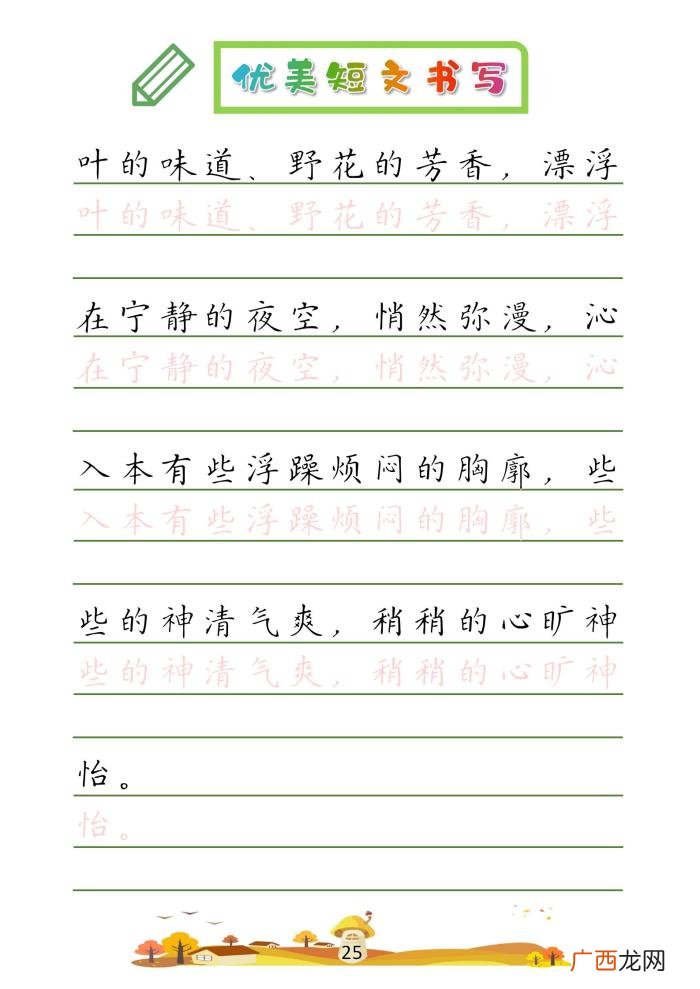 优美短文书写
叶的味道、野花的芳香，漂浮
叶的味道、野花的芳香，漂浮
在宁静的夜空，悄然弥漫，沁
在宁静的夜空，悄然弥漫，沁
入本有些浮躁烦闷的胸廓，些
入本有些浮躁烦闷的胸廓，些
些的神清气爽，稍稍的心旷神
些的神清气爽，稍稍的心旷神
怡。
怡。
25
广西龙网